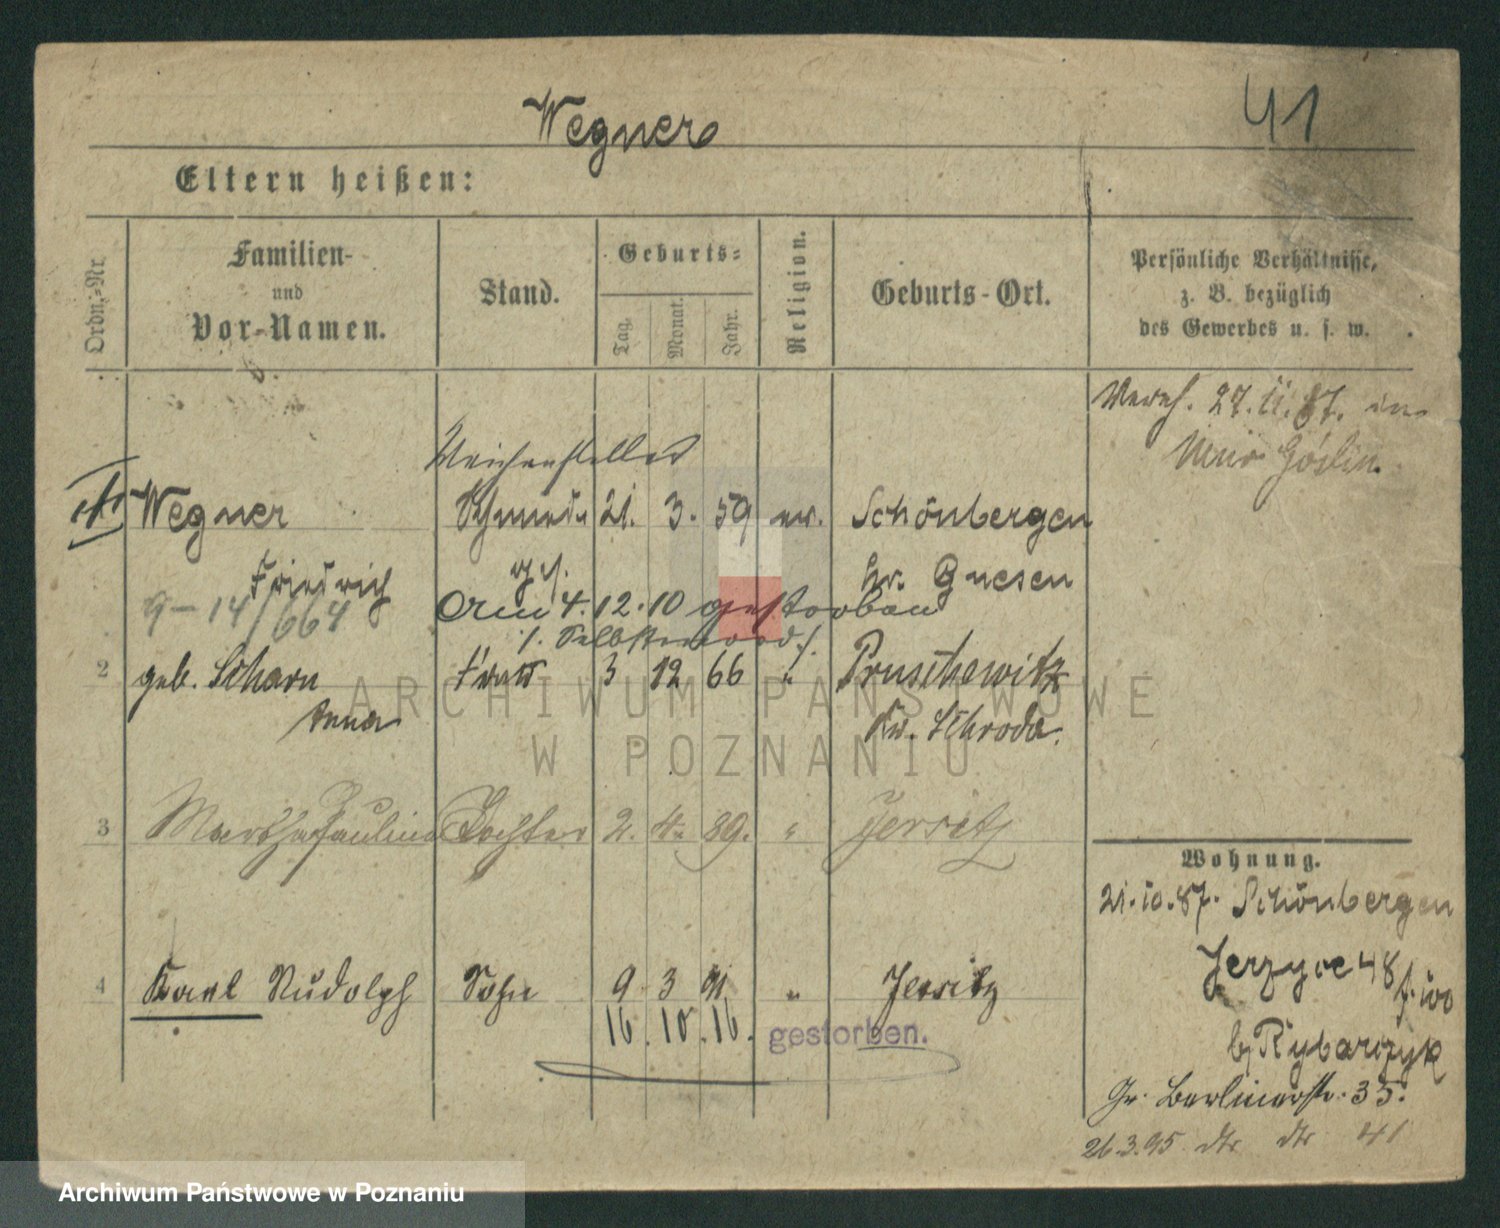 41
Wegner
Eltern heißen:
Ordn.-Nr.
Familien-
und
Vor-Namen.
Stand.
Geburts-
Tag.
Monat.
Jahr.
Religion.
Geburts-Ort.
Persönliche Verhältnisse,
z. B. bezüglich
des Gewerbes u. s. w.
Vereh. 27.11.87. in
Goslin.
Weichensteller
Wegner Schmied 21. 3. 59 ev. Schönbergen
Friedrich Kr. Gnesen
9-14/664
Am 4.12.10 gestorben
/. Selbstmord /.
2 geb. Scharn Frau 3 12 66 " Pruschewitz
Anna Kr. Schroda.
3 Martha Paulina Tochter 2. 4. 89. " Jersitz
4 Karl Rudolph Sohn 9 3 91 " Jersitz
16.10.16. gestorben.
Wohnung.
21.10.87. Schönbergen
Jerzyce 48
b/ Rybarczyk
Gr. Berlinerstr. 35.
26.3.95 dto dto 41
ARCHIWUM PAŃSTWOWE
W POZNANIU
Archiwum Państwowe w Poznaniu